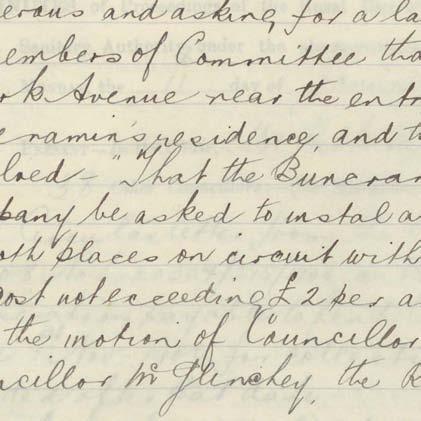 erous and asking for a la
embers of Committee tha
rk Avenue near the entr
e ramin's residence, and t
lved - "That the Buncran
pany be asked to instal a
oth places on circuit with
cost not exceeding £2 per a
the motion of Councillor
ncillor McGlinchey, the R